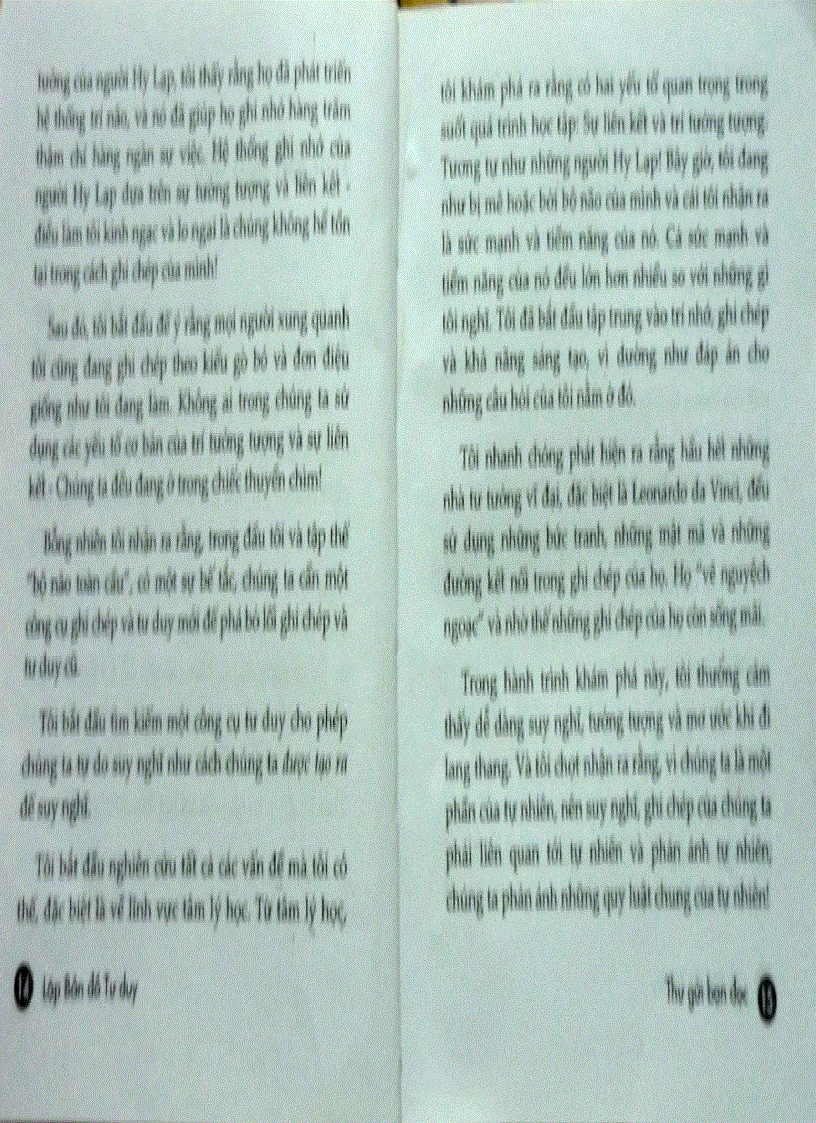 tưởng của người Hy Lạp, tôi thấy rằng họ đã phát triển
hệ thống trí não, và nó đã giúp họ ghi nhớ hàng trăm
thậm chí hàng ngàn sự việc. Hệ thống ghi nhớ của
người Hy Lạp dựa trên sự tưởng tượng và liên kết -
điều làm tôi kinh ngạc và lo ngại là chúng không hề tồn
tại trong cách ghi chép của mình!
Sau đó, tôi bắt đầu để ý rằng mọi người xung quanh
tôi cũng đang ghi chép theo kiểu gò bó và đơn điệu
giống như tôi đang làm. Không ai trong chúng ta sử
dụng các yếu tố cơ bản của trí tưởng tượng và sự liên
kết - Chúng ta đều đang ở trong chiếc thuyền chìm!
Bỗng nhiên tôi nhận ra rằng, trong đầu tôi và tập thể
"bộ não toàn cầu", có một sự bế tắc, chúng ta cần một
công cụ ghi chép và tư duy mới để phá bỏ lối ghi chép và
tư duy cũ.
Tôi bắt đầu tìm kiếm một công cụ tư duy cho phép
chúng ta tự do suy nghĩ như cách chúng ta được tạo ra
để suy nghĩ.
Tôi bắt đầu nghiên cứu tất cả các vấn đề mà tôi có
thể, đặc biệt là về lĩnh vực tâm lý học. Từ tâm lý học,
Lập Bản đồ Tư duy
tôi khám phá ra rằng có hai yếu tố quan trọng trong
suốt quá trình học tập: Sự liên kết và trí tưởng tượng.
Tương tự như những người Hy Lạp! Bây giờ, tôi đang
như bị mê hoặc bởi bộ não của mình và cái tôi nhận ra
là sức mạnh và tiềm năng của nó. Cả sức mạnh và
tiềm năng của nó đều lớn hơn nhiều so với những gì
tôi nghĩ. Tôi đã bắt đầu tập trung vào trí nhớ, ghi chép
và khả năng sáng tạo, vì dường như đáp án cho
những câu hỏi của tôi nằm ở đó.
Tôi nhanh chóng phát hiện ra rằng hầu hết những
nhà tư tưởng vĩ đại, đặc biệt là Leonardo da Vinci, đều
sử dụng những bức tranh, những mật mã và những
đường kết nối trong ghi chép của họ. Họ "vẽ nguệch
ngoạc" và nhờ thế những ghi chép của họ còn sống mãi.
Trong hành trình khám phá này, tôi thường cảm
thấy dễ dàng suy nghĩ, tưởng tượng và mơ ước khi đi
lang thang. Và tôi chợt nhận ra rằng, vì chúng ta là một
phần của tự nhiên, nên suy nghĩ, ghi chép của chúng ta
phải liên quan tới tự nhiên và phản ánh tự nhiên;
chúng ta phản ánh những quy luật chung của tự nhiên!
Thư gửi bạn đọc